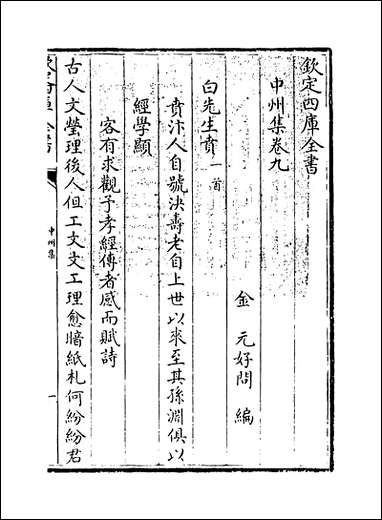 欽定四庫全書
中州集卷九
金 元好問 編
白先生賁一首
賁汴人自號決壽老自上世以來至其孫淵俱以
經學顯
客有求觀予孝經傳者感而賦詩
古人文瑩理後人但工文文工理愈暗紙札何紛紛君
欽定四庫全書
中州集
一